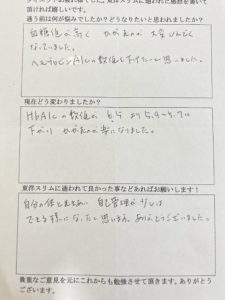 頂ければ嬉しいです。
通う前は何が悩みでしたか?どうなりたいと思われましたか?
血糖値が高く、かがむのが大変しんどく
なっていました。
ヘモグロビンA1cの数値も下げたいと思いました。
現在どう変わりましたか?
HbA1cの数値が6.5より5.9〜5.7に
下がり かがむのが楽になりました。
東洋スリムに通われて良かった事などあればお願いします!
自分の体と向きあい 自己管理が少しは
できる様になったと思います。ありがとうございました。
貴重なご意見を元にこれからも勉強させて頂きます。ありがとう
ございます。